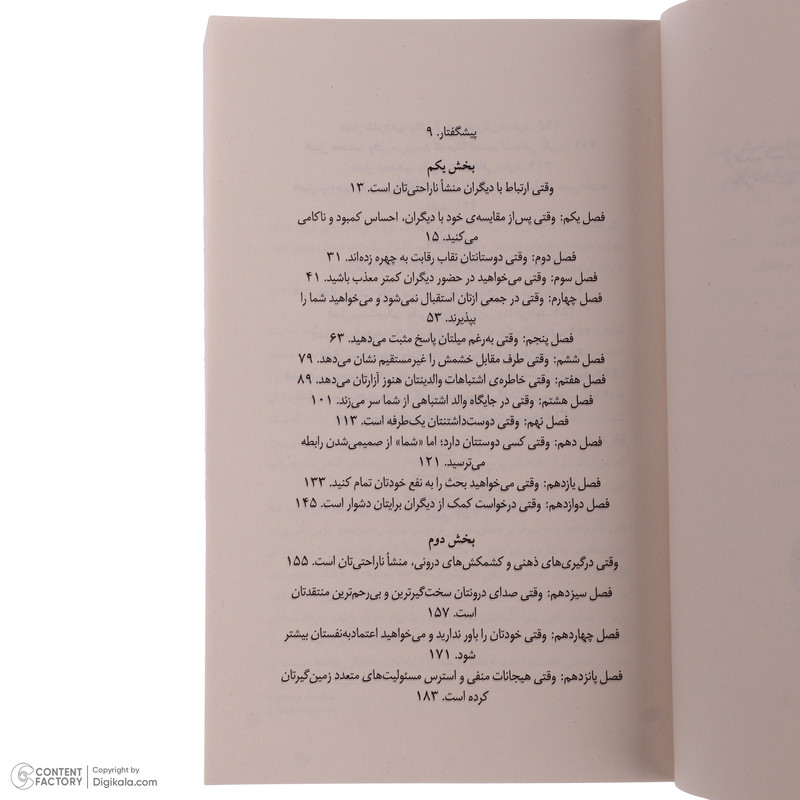 پیشگفتار. ۹
بخش یکم
وقتی ارتباط با دیگران منشأ ناراحتی‌تان است. ۱۳
فصل یکم: وقتی پس‌از مقایسه‌ی خود با دیگران، احساس کمبود و ناکامی
می‌کنید. ۱۵
فصل دوم: وقتی دوستانتان نقاب رقابت به چهره زده‌اند. ۳۱
فصل سوم: وقتی می‌خواهید در حضور دیگران کمتر معذب باشید. ۴۱
فصل چهارم: وقتی در جمعی ازتان استقبال نمی‌شود و می‌خواهید شما را
بپذیرند. ۵۳
فصل پنجم: وقتی به‌رغم میلتان پاسخ مثبت می‌دهید. ۶۳
فصل ششم: وقتی طرف مقابل خشمش را غیرمستقیم نشان می‌دهد. ۷۹
فصل هفتم: وقتی خاطره‌ی اشتباهات والدینتان هنوز آزارتان می‌دهد. ۸۹
فصل هشتم: وقتی در جایگاه والد اشتباهی از شما سر می‌زند. ۱۰۱
فصل نهم: وقتی دوست‌داشتنتان یک‌طرفه است. ۱۱۳
فصل دهم: وقتی کسی دوستتان دارد؛ اما «شما» از صمیمی‌شدن رابطه
می‌ترسید. ۱۲۱
فصل یازدهم: وقتی می‌خواهید بحث را به نفع خودتان تمام کنید. ۱۳۳
فصل دوازدهم: وقتی درخواست کمک از دیگران برایتان دشوار است. ۱۴۵
بخش دوم
وقتی درگیری‌های ذهنی و کشمکش‌های درونی، منشأ ناراحتی‌تان است. ۱۵۵
فصل سیزدهم: وقتی صدای درونتان سخت‌گیرترین و بی‌رحم‌ترین منتقدتان
است. ۱۵۷
فصل چهاردهم: وقتی خودتان را باور ندارید و می‌خواهید اعتمادبه‌نفستان بیشتر
شود. ۱۷۱
فصل پانزدهم: وقتی هیجانات منفی و استرس مسئولیت‌های متعدد زمین‌گیرتان
کرده است. ۱۸۳
CONTENT FACTORY
Copyright by
Digikala.com